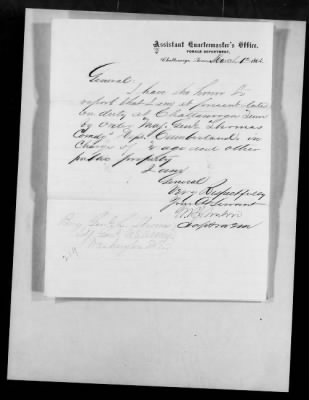 Assistant Quartermaster's Office,
FORAGE DEPARTMENT,
Chattanooga, Tenn, March 1st 186
General:
I have the honor to
report that I am at present stationed
on duty at Chattanooga Tenn
by order Maj: Genl Thomas
Comdg Dept. Cumberland, in
Charge of forage and other
public property
I am
General
Very Respectfully
Your Obt Servant
Capt
Brig Genl
Washington D.C.